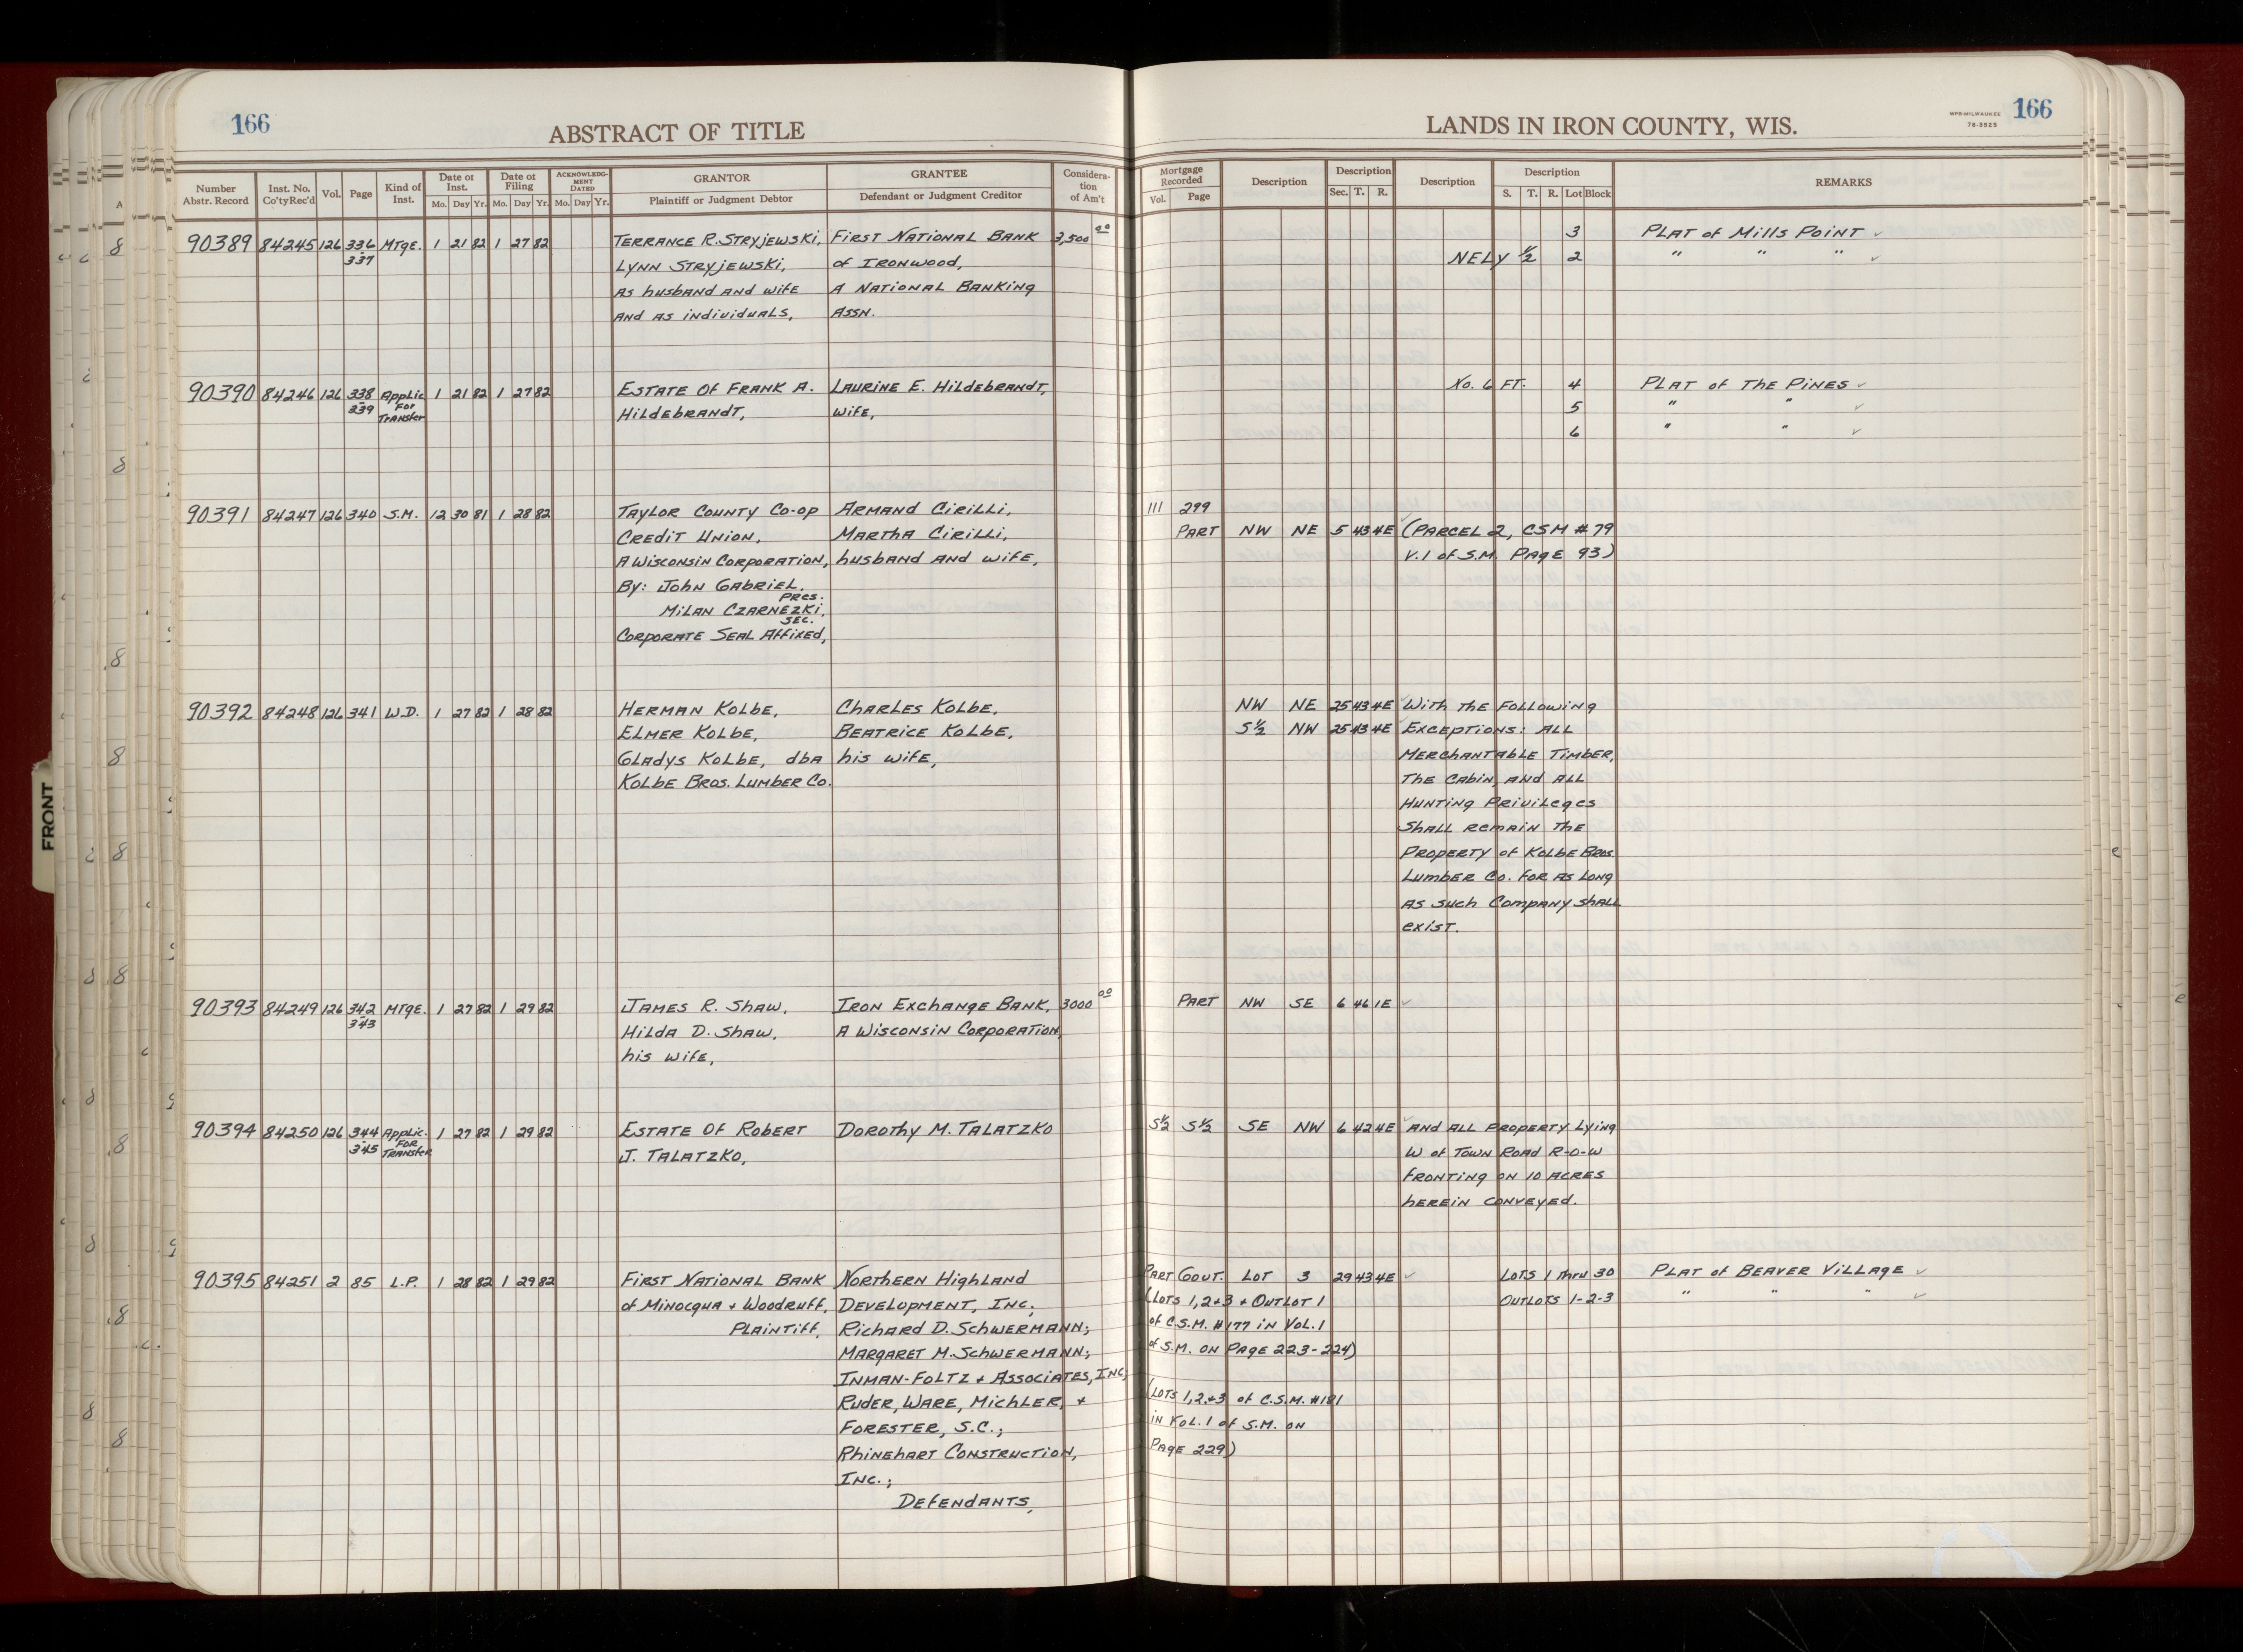 166
ABSTRACT OF TITLE
LANDS IN IRON COUNTY, WIS.
WPB-MILWAUKEE
78-3525
166
Number Abstr. Record | Inst. No. Co'ty Rec'd | Vol. | Page | Kind of Inst. | Date of Inst. Mo. Day Yr. | Date of Filing Mo. Day Yr. | ACKNOWLEDGMENT DATED Mo. Day Yr. | GRANTOR Plaintiff or Judgment Debtor | GRANTEE Defendant or Judgment Creditor | Consideration of Am't | Mortgage Recorded Vol. Page | Description | Description Sec. T. R. | Description | Description S. T. R. Lot Block | REMARKS
90389 84245 126 336 MTGE. 1 21 82 1 27 82 TERRANCE R. STRYJEWSKI, FIRST NATIONAL BANK 3,500 00 3 PLAT of MILLS POINT ✓
337 LYNN STRYJEWSKI, of IRONWOOD, NELY ½ 2 " " " ✓
AS husband AND wife A NATIONAL BANKING
AND AS individUALS, ASSN.
90390 84246 126 338 Applic 1 21 82 1 27 82 ESTATE OF FRANK A. LAURINE E. HILDEBRANDT, No. 6 FT. 4 PLAT of THE PINES ✓
339 FOR TRANSFER HILDEBRANDT, wife, 5 " " ✓
6 " " ✓
90391 84247 126 340 S.M. 12 30 81 1 28 82 TAYLOR COUNTY CO-OP ARMAND CIRILLI, 111 299
CREDIT UNION, MARTHA CIRILLI, PART NW NE 5 43 4E (PARCEL 2, CSM #79
A WISCONSIN CORPORATION, husband AND wife, V.1 of S.M. PAGE 93)
By: JOHN GABRIEL,
PRES.
MILAN CZARNEZKI,
SEC.
CORPORATE SEAL AFFIXED,
90392 84248 126 341 W.D. 1 27 82 1 28 82 HERMAN KOLBE, CHARLES KOLBE, NW NE 25 43 4E ✓ With THE FOLLOWING
ELMER KOLBE, BEATRICE KOLBE, S½ NW 25 43 4E ✓ EXCEPTIONS: ALL
GLADYS KOLBE, dba his wife, MERCHANTABLE TIMBER,
KOLBE BROS. LUMBER CO. THE CABIN, AND ALL
HUNTING PRIVILEGES
SHALL REMAIN THE
PROPERTY of KOLBE BROS.
LUMBER CO. FOR AS LONG
AS SUCH COMPANY SHALL
EXIST.
90393 84249 126 342 MTGE. 1 27 82 1 29 82 JAMES R. SHAW, IRON EXCHANGE BANK, 3000 00 PART NW SE 6 46 1E ✓
343 HILDA D. SHAW, A WISCONSIN CORPORATION,
his wife,
90394 84250 126 344 Applic. 1 27 82 1 29 82 ESTATE OF ROBERT DOROTHY M. TALATZKO S½ S½ SE NW 6 42 4E ✓ AND ALL PROPERTY LYING
345 FOR TRANSFER J. TALATZKO, W of TOWN ROAD R-O-W
FRONTING ON 10 ACRES
HEREIN CONVEYED.
90395 84251 2 85 L.P. 1 28 82 1 29 82 FIRST NATIONAL BANK NORTHERN HIGHLAND PART GOVT. LOT 3 29 43 4E ✓ LOTS 1 THRU 30 PLAT of BEAVER VILLAGE ✓
of MINOCQUA + WOODRUFF, DEVELOPMENT, INC; (LOTS 1,2+3 + OUTLOT 1 OUTLOTS 1-2-3 " " " ✓
PLAINTIFF, RICHARD D. SCHWERMANN; of C.S.M. #177 IN VOL.1
MARGARET M. SCHWERMANN; of S.M. ON PAGE 223-224)
INMAN-FOLTZ + ASSOCIATES, INC;
RUDER, WARE, MICHLER, + (LOTS 1,2,+3 of C.S.M. #181
FORESTER, S.C.; IN VOL.1 of S.M. ON
RHINEHART CONSTRUCTION, PAGE 229)
INC.;
DEFENDANTS,
FRONT